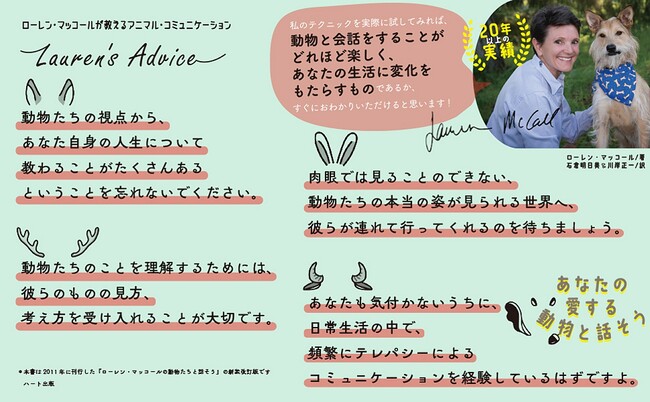 ローレン・マッコールが教えるアニマル・コミュニケーション
Lauren's Advice
私のテクニックを実際に試してみれば、
動物と会話をすることが
どれほど楽しく、
あなたの生活に変化を
もたらすものであるか、
すぐにおわかりいただけると思います！
20年
以上の
実績
Lauren McCall
ローレン・マッコール/著
石倉明日美&川岸正一/訳
動物たちの視点から、
あなた自身の人生について
教わることがたくさんある
ということを忘れないでください。
肉眼では見ることのできない、
動物たちの本当の姿が見られる世界へ、
彼らが連れて行ってくれるのを待ちましょう。
動物たちのことを理解するためには、
彼らのものの見方、
考え方を受け入れることが大切です。
あなたも気付かないうちに、
日常生活の中で、
頻繁にテレパシーによる
コミュニケーションを経験しているはずですよ。
あなたの
愛する
動物と話そう
＊本書は2011年に刊行した『ローレン・マッコールの動物たちと話そう』の新装改訂版です
ハート出版